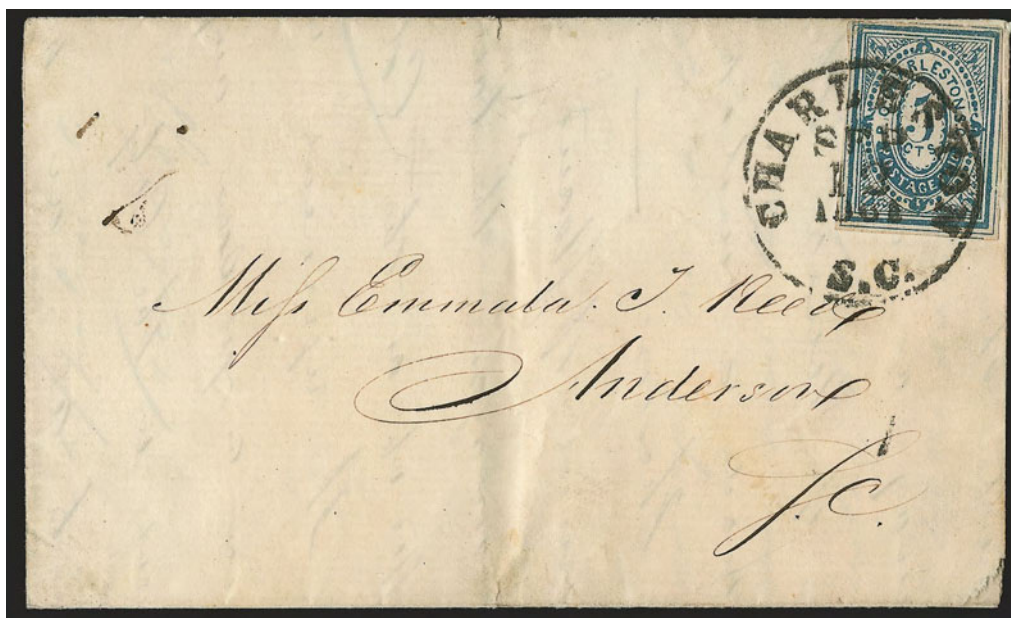 CHARLESTON
SEP
1861
S.C.
CHARLESTON
5
CTS
POSTAGE
Miss Emmala. J. Reed
Anderson
S.C.